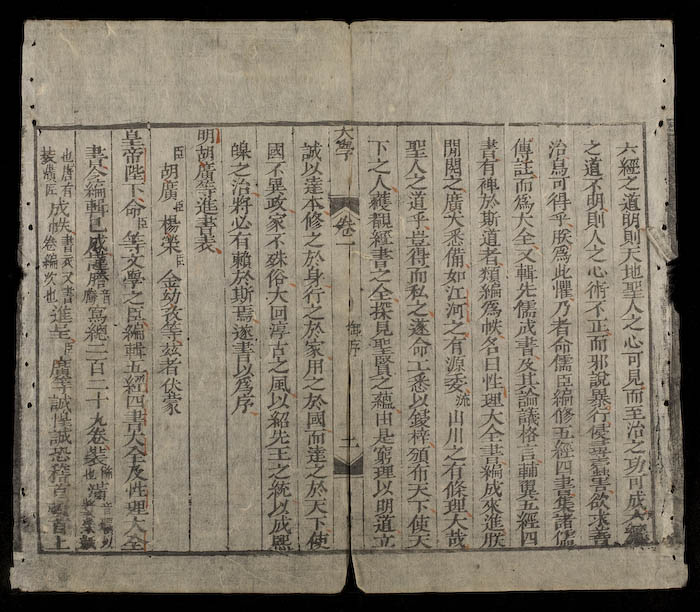 六經之道明則天地聖人之心可見而至治之功可成六經
之道不明則人之心術不正而邪說暴行侵尋蠹害欲求善
治烏可得乎朕爲此懼乃者命儒臣編修五經四書集諸儒
傳註而爲大全又輯先儒成書及其論議格言輔翼五經四
書有裨於斯道者類編爲帙名曰性理大全書編成來進朕
閒閱之廣大悉備如江河之有源委流山川之有條理大哉
聖人之道乎豈得而私之遂命工悉以鋟梓頒布天下使天
下之人獲覩經書之全探見聖賢之蘊由是窮理以明道立
大學 卷一 御序 二
誠以達本修之於身行之於家用之於國而達之於天下使
國不異政家不殊俗大回淳古之風以紹先王之統以成熙
皞之治將必有賴於斯焉遂書以爲序
明胡廣等進書表
臣胡廣臣楊榮臣金幼孜等茲者伏蒙
皇帝陛下命臣等文學之臣編輯五經四書大全及性理大全
書今編輯已成謹謄音騰寫總二百二十九卷裝也潢
也唐有裝潢匠成帙書衣又書卷編次也進呈臣廣等誠惶誠恐稽首頓首上